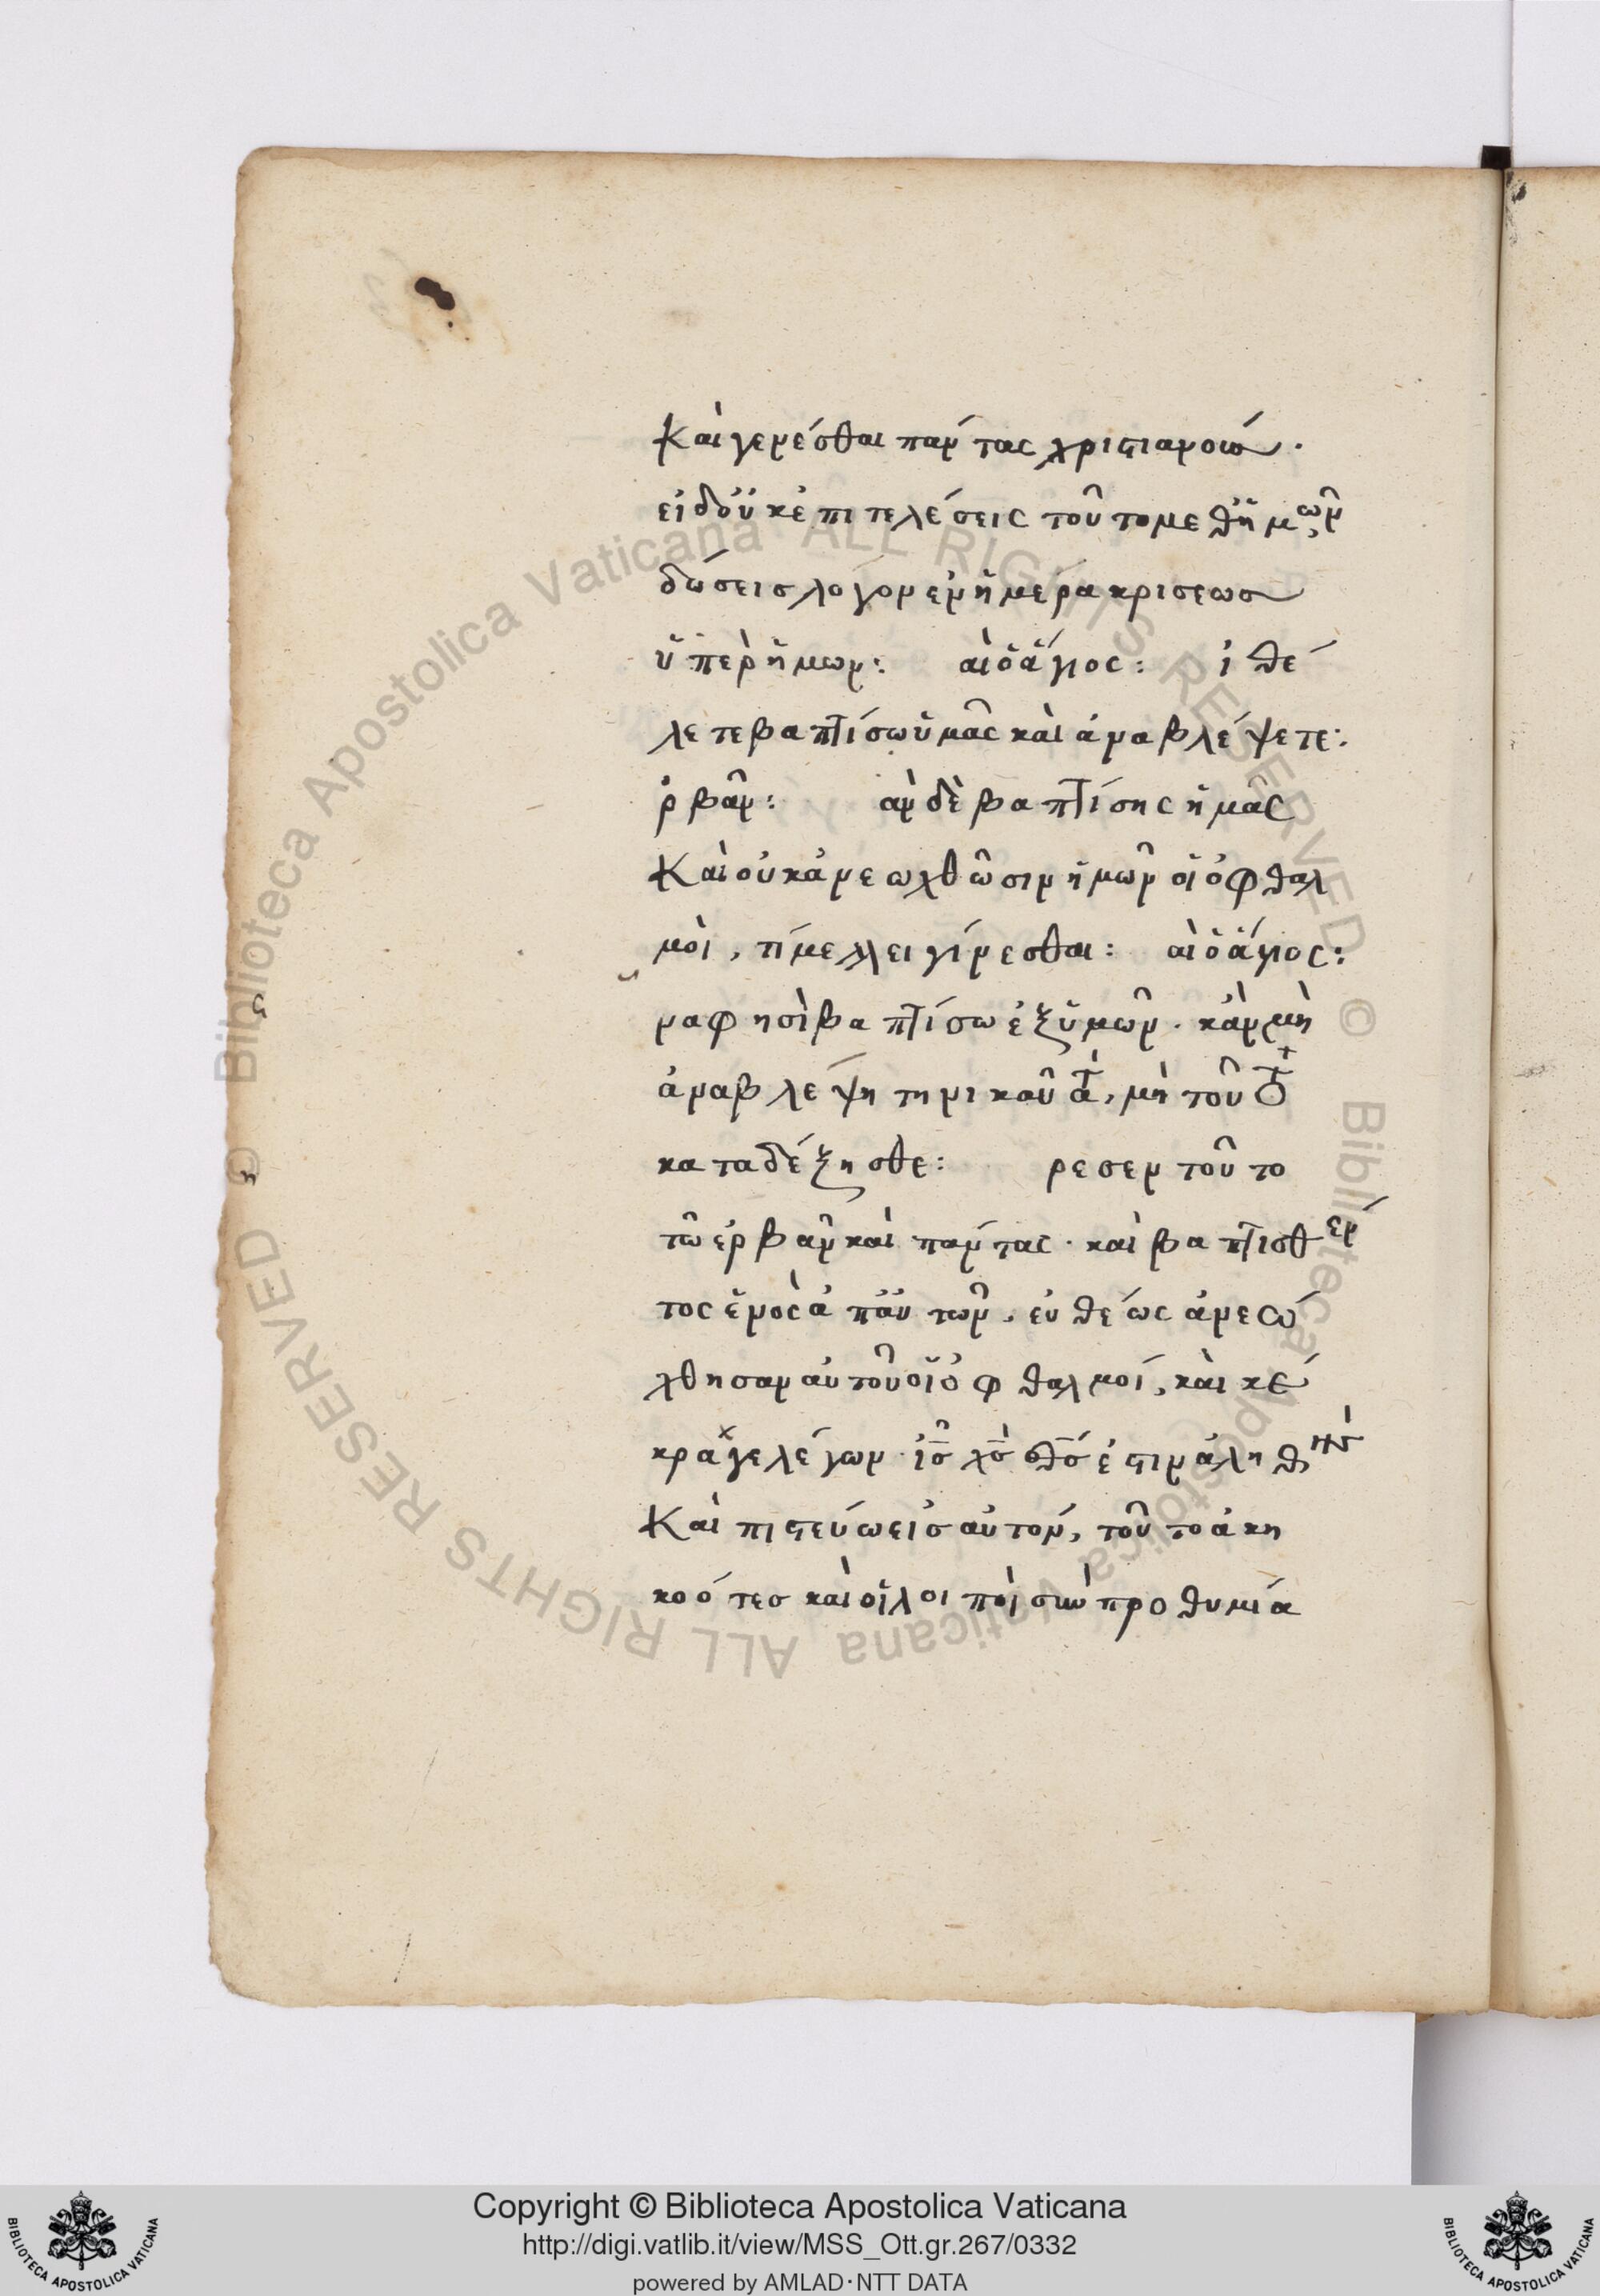 Καὶ γενέσθαι πάντας χριστιανούς.
εἰ δ' οὐκ ἐπιτελέσεις τοῦτο μεθ' ἡμῶν
δώσεις λόγον ἐν ἡμέρα κρισεως
ὑπερ ἡμων: αι ὁ ἅγιος: ι θέ
λετε βαπτίσω ὑμᾶς καὶ ἀναβλέψετε:
ρβαν: αν δὲ βαπτίσης ἡμᾶς
Καὶ οὐκ ἀνεωχθῶσιν ἡμῶν οἱ ὀφθαλ
μοὶ, τί μελλει γίνεσθαι: αι ὁ ἅγιος:
να φησὶ βαπτίσω ἐξ ὑμῶν. κἀν μὴ
ἀναβλέψη τηνικαῦτα, μὴ τοῦτο
καταδέξησθε: ρεσεν τοῦτο
τῶ ἐρβαν καὶ πάντας. καὶ βαπτισθέν
τος ἑνὸς ἀπ' αὐτῶν, εὐθέως ἀνεώ
χθησαν αὐτοῦ οἱ ὀφθαλμοί, καὶ κέ
κραγε λέγων. ις χς θς ἐστιν ἀληθης
Καὶ πιστεύω εἰς αὐτόν, τοῦτο ἀκη
κοότες καὶ οἱ λοιποὶ σὺν προθυμία
Copyright © Biblioteca Apostolica Vaticana
http://digi.vatlib.it/view/MSS_Ott.gr.267/0332
powered by AMLAD·NTT DATA